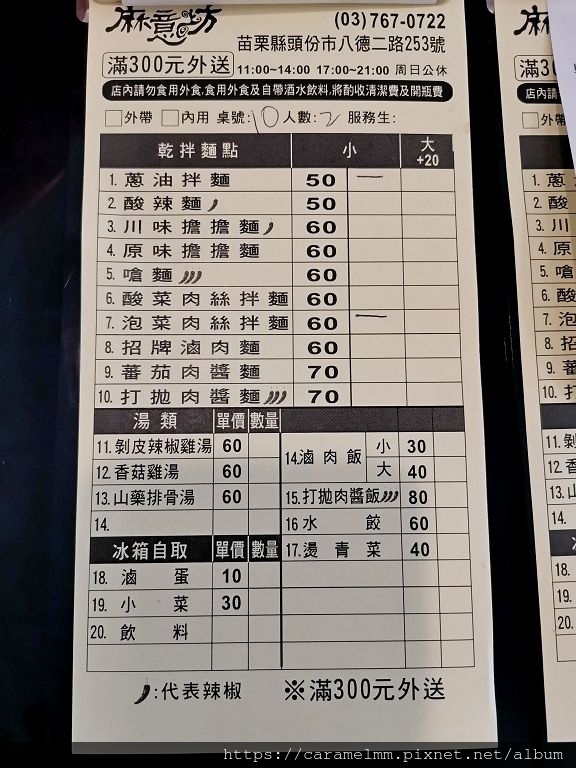 麻意坊
(03)767-0722
苗栗縣頭份市八德二路253號
滿300元外送 11:00~14:00 17:00~21:00 周日公休
店內請勿食用外食,食用外食及自帶酒水飲料,將酌收清潔費及開瓶費
外帶 內用 桌號:10 人數:2 服務生:
乾拌麵點 小 大+20
1. 蔥油拌麵 50 一
2. 酸辣麵 50
3. 川味擔擔麵 60
4. 原味擔擔麵 60
5. 嗆麵 60
6. 酸菜肉絲拌麵 60
7. 泡菜肉絲拌麵 60 一
8. 招牌滷肉麵 60
9. 蕃茄肉醬麵 70
10. 打拋肉醬麵 70
湯類 單價 數量
11. 剝皮辣椒雞湯 60
12. 香菇雞湯 60
13. 山藥排骨湯 60
14.
14. 滷肉飯 小 30
大 40
15. 打拋肉醬飯 80
16 水餃 60
17. 燙青菜 40
冰箱自取 單價 數量
18. 滷蛋 10
19. 小菜 30
20. 飲料
:代表辣椒 ※滿300元外送
滿30
店內請勿食用外
外帶
1. 蔥
2. 酸
3. 川
4. 原
5. 嗆
6. 酸
7. 泡
8. 招
9. 蕃
10. 打
11. 剝
12. 香
13. 山
14.
冰
18.
19.
20.
https://caramelmm.pixnet.net/album